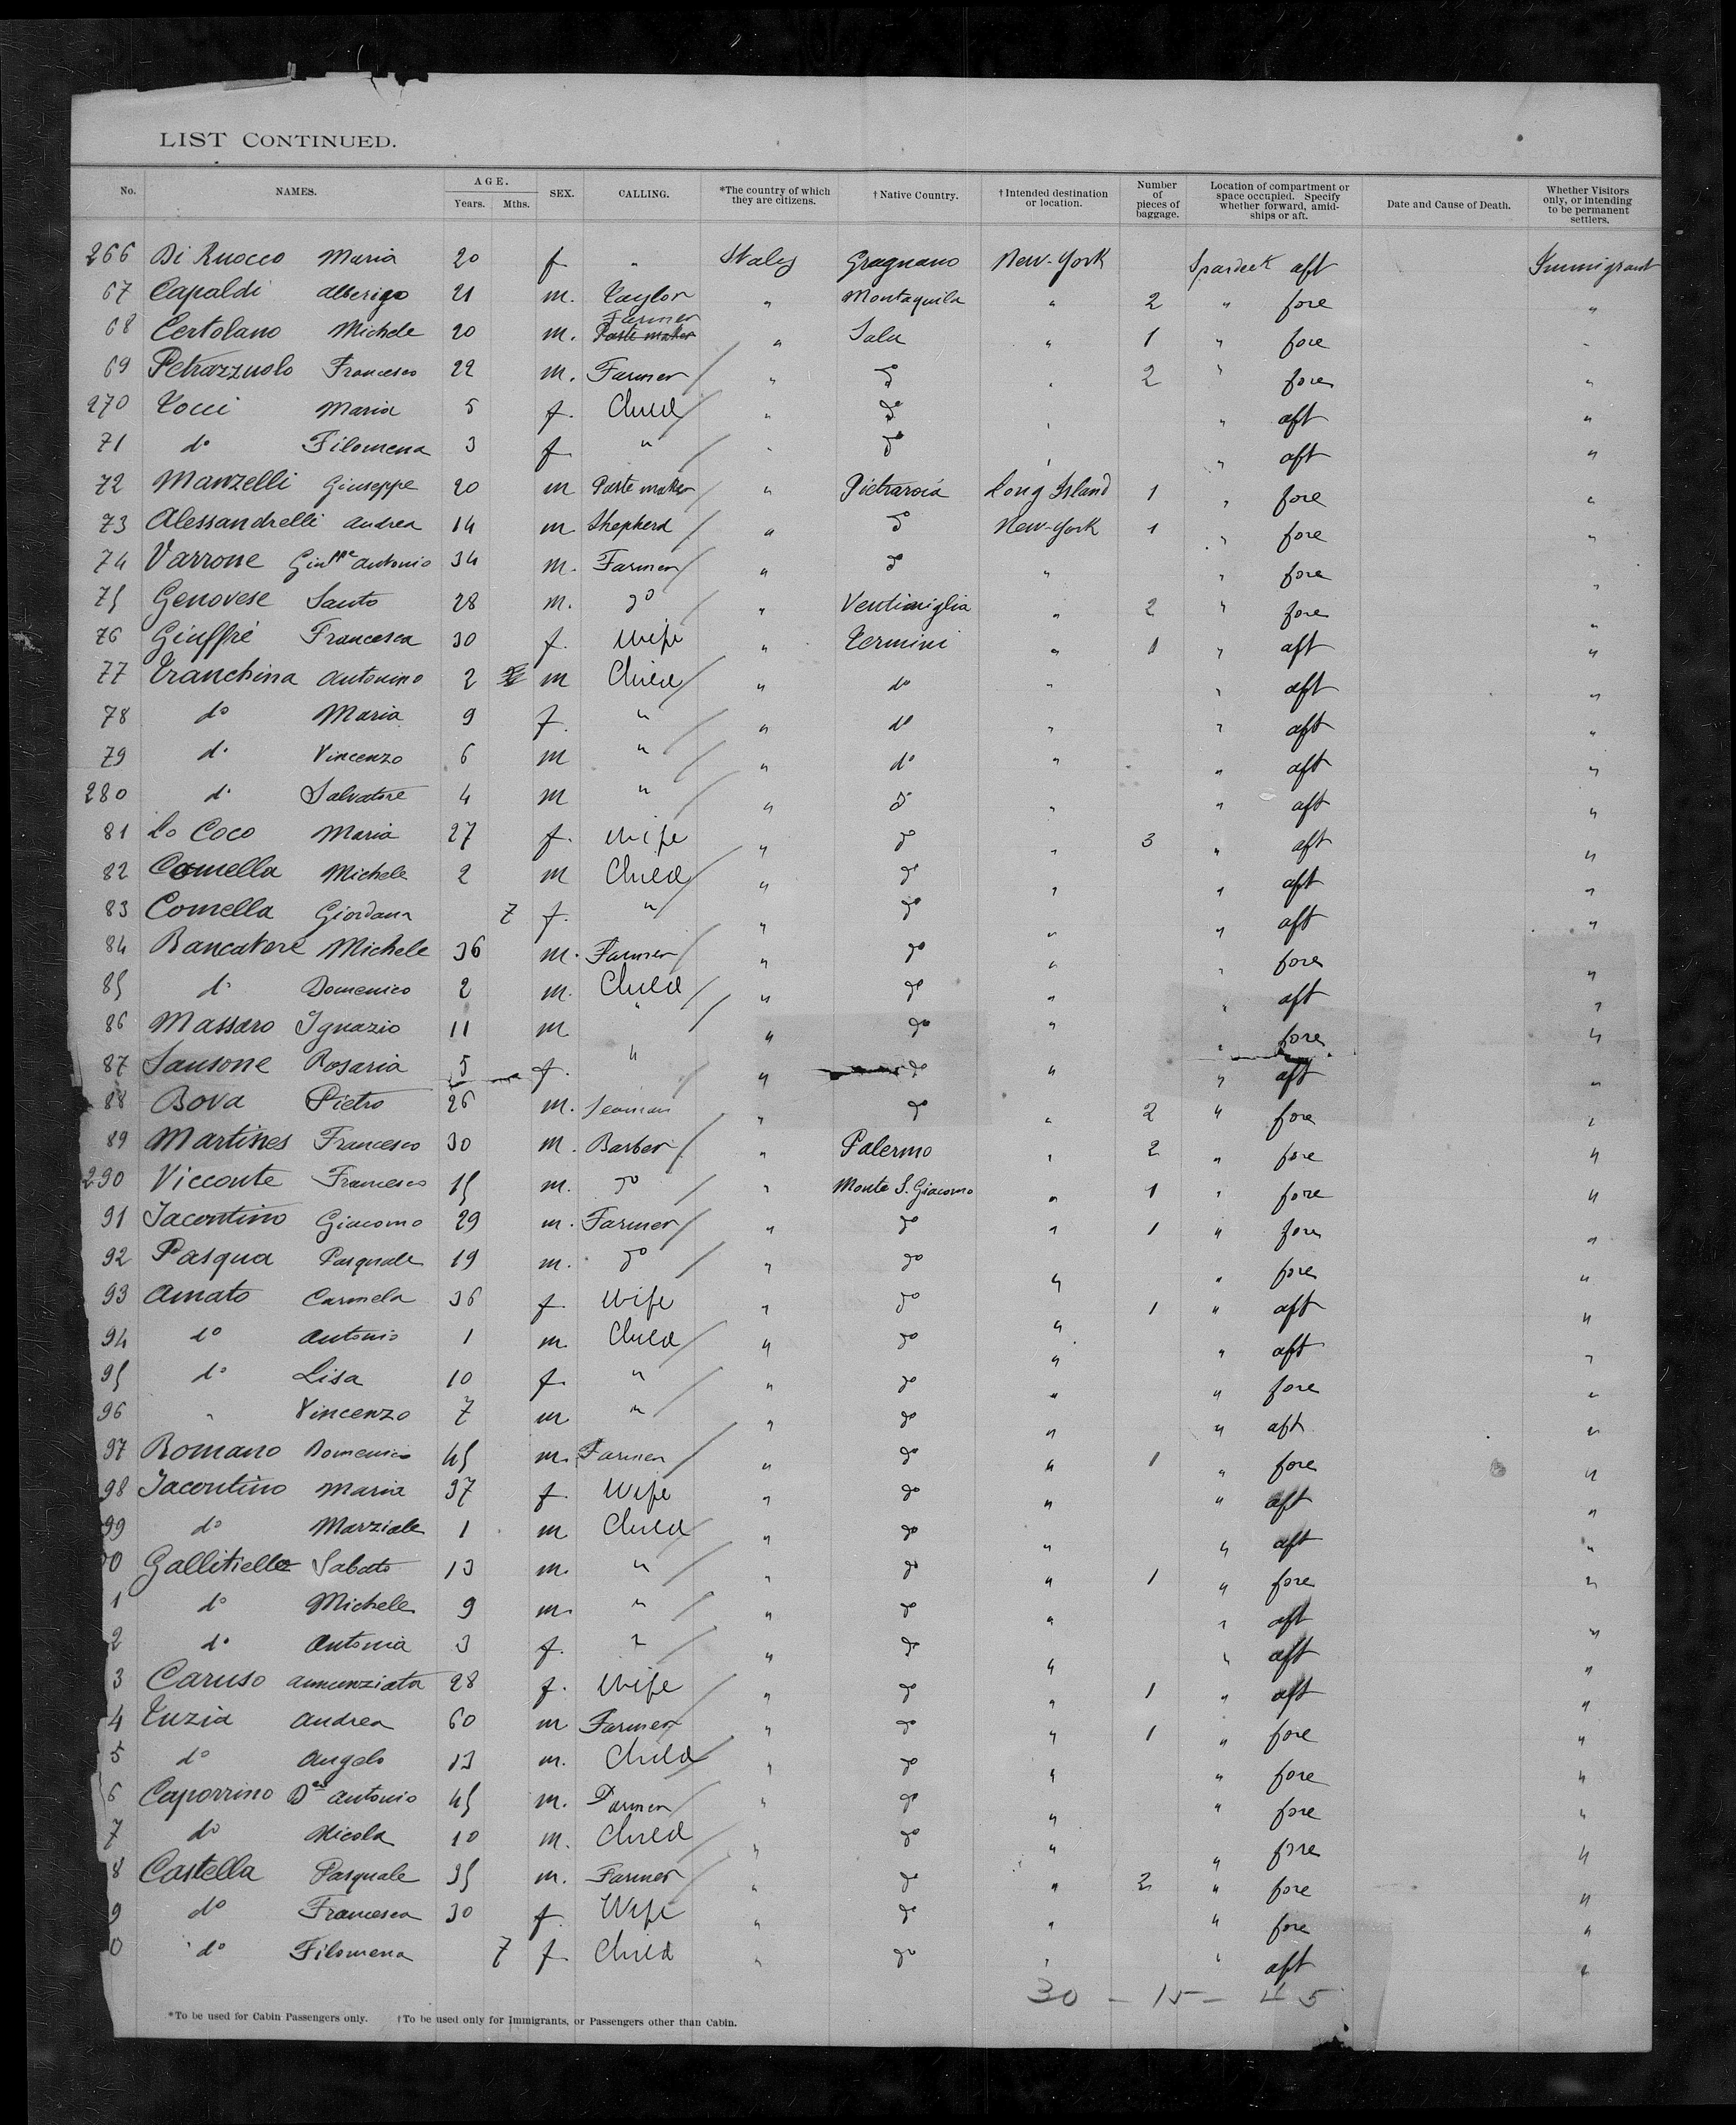 LIST CONTINUED.
No. NAMES. AGE. Years. Mths. SEX. CALLING. *The country of which they are citizens. †Native Country. †Intended destination or location. Number of pieces of baggage. Location of compartment or space occupied. Specify whether forward, amidships or aft. Date and Cause of Death. Whether Visitors only, or intending to be permanent settlers.
266 Di Ruocco Maria 20 f " Italy Gragnano New-York Spardeck aft Immigrant
67 Capaldi Alberigo 21 m. Taylor " Montaquila " 2 " fore "
68 Certolano Michele 20 m. Farmer Paste maker " Sala " 1 " fore "
69 Petrazzuolo Francesco 22 m. Farmer " do " 2 " fore "
270 Tocci Maria 5 f. Child " do " " aft "
71 do Filomena 3 f " " do " " aft "
72 Manzelli Giuseppe 20 m Paste maker " Pietraroia Long Island 1 " fore "
73 Alessandrelli Andrea 14 m Shepherd " do New-York 1 " fore "
74 Varrone Giusppe Antonio 34 m. Farmer " do " " fore "
75 Genovese Santo 28 m. do " Ventimiglia " 2 " fore "
76 Giuffrè Francesca 30 f. Wife " Termini " 1 " aft "
77 Tranchina Antonino 2 m Child " do " " aft "
78 do Maria 9 f. " " do " " aft "
79 do Vincenzo 6 m " " do " " aft "
280 do Salvatore 4 m " " do " " aft "
81 Lo Coco Maria 27 f. Wife " do " 3 " aft "
82 Comella Michele 2 m Child " do " " aft "
83 Comella Giordana 7 f. " " do " " aft "
84 Bancatore Michele 36 m. Farmer " do " " fore "
85 do Domenico 2 m. Child " do " " aft "
86 Massaro Ignazio 11 m " " do " " fore "
87 Sansone Rosaria 5 f. " " do " " aft "
88 Bova Pietro 26 m. Seaman " do " 2 " fore "
89 Martines Francesco 30 m. Barber " Palermo " 2 " fore "
290 Vicconte Francesco 15 m. do " Monte S. Giacomo " 1 " fore "
91 Iacontino Giacomo 29 m. Farmer " do " 1 " fore "
92 Pasqua Pasquale 19 m. do " do " " fore "
93 Amato Carmela 36 f Wife " do " 1 " aft "
94 do Antonio 1 m Child " do " " aft "
95 do Lisa 10 f. " " do " " fore "
96 " Vincenzo 7 m " " do " " aft "
97 Romano Domenico 45 m. Farmer " do " 1 " fore "
98 Iacontino Maria 37 f. Wife " do " " aft "
99 do Marziale 1 m Child " do " " aft "
00 Gallitiello Sabato 13 m. " " do " 1 " fore "
1 do Michele 9 m. " " do " " aft "
2 do Antonia 3 f. " " do " " aft "
3 Caruso Annunziata 28 f. Wife " do " 1 " aft "
4 Tuzia Andrea 60 m Farmer " do " 1 " fore "
5 do Angelo 13 m. Child " do " " fore "
6 Caporrino Antonio 45 m. Farmer " do " " fore "
7 do Nicola 10 m. Child " do " " fore "
8 Castella Pasquale 35 m. Farmer " do " 2 " fore "
9 do Francesca 30 f. Wife " do " " fore "
0 do Filomena 7 f Child " do " " aft "
30 – 15 – 45
*To be used for Cabin Passengers only. †To be used only for Immigrants, or Passengers other than Cabin.